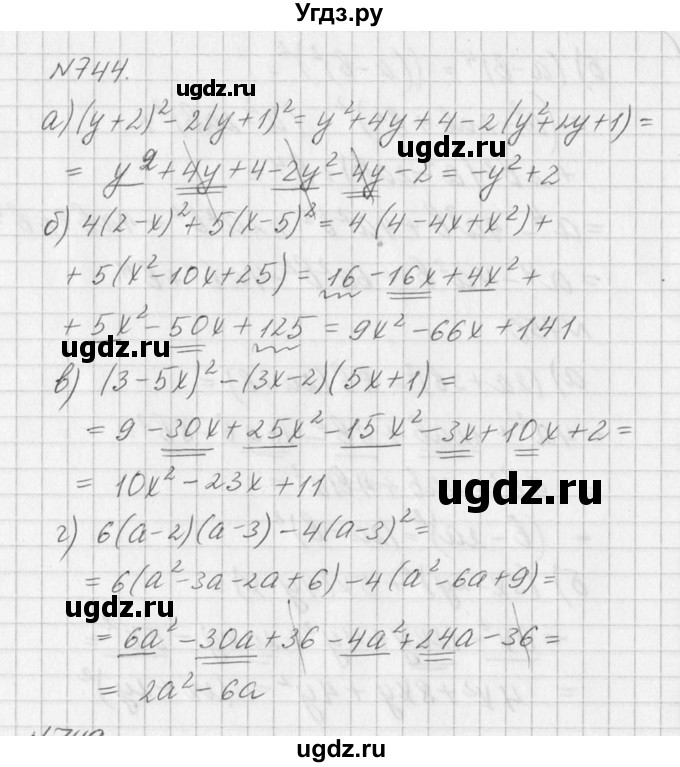 Угдз.ру
№744.
ugdz.ru
а) (y+2)² - 2(y+1)² = y² + 4y + 4 - 2(y² + 2y + 1) =
ugdz.ru
= y² + 4y + 4 - 2y² - 4y - 2 = -y² + 2
б) 4(2-x)² + 5(x-5)² = 4(4 - 4x + x²) +
+ 5(x² - 10x + 25) = 16 - 16x + 4x² +
+ 5x² - 50x + 125 = 9x² - 66x + 141
ugdz.ru
в) (3-5x)² - (3x-2)(5x+1) =
= 9 - 30x + 25x² - 15x² - 3x + 10x + 2 =
= 10x² - 23x + 11
ugdz.ru
г) 6(a-2)(a-3) - 4(a-3)² =
= 6(a² - 3a - 2a + 6) - 4(a² - 6a + 9) =
ugdz.ru
= 6a² - 30a + 36 - 4a² + 24a - 36 =
= 2a² - 6a
ugdz.ru